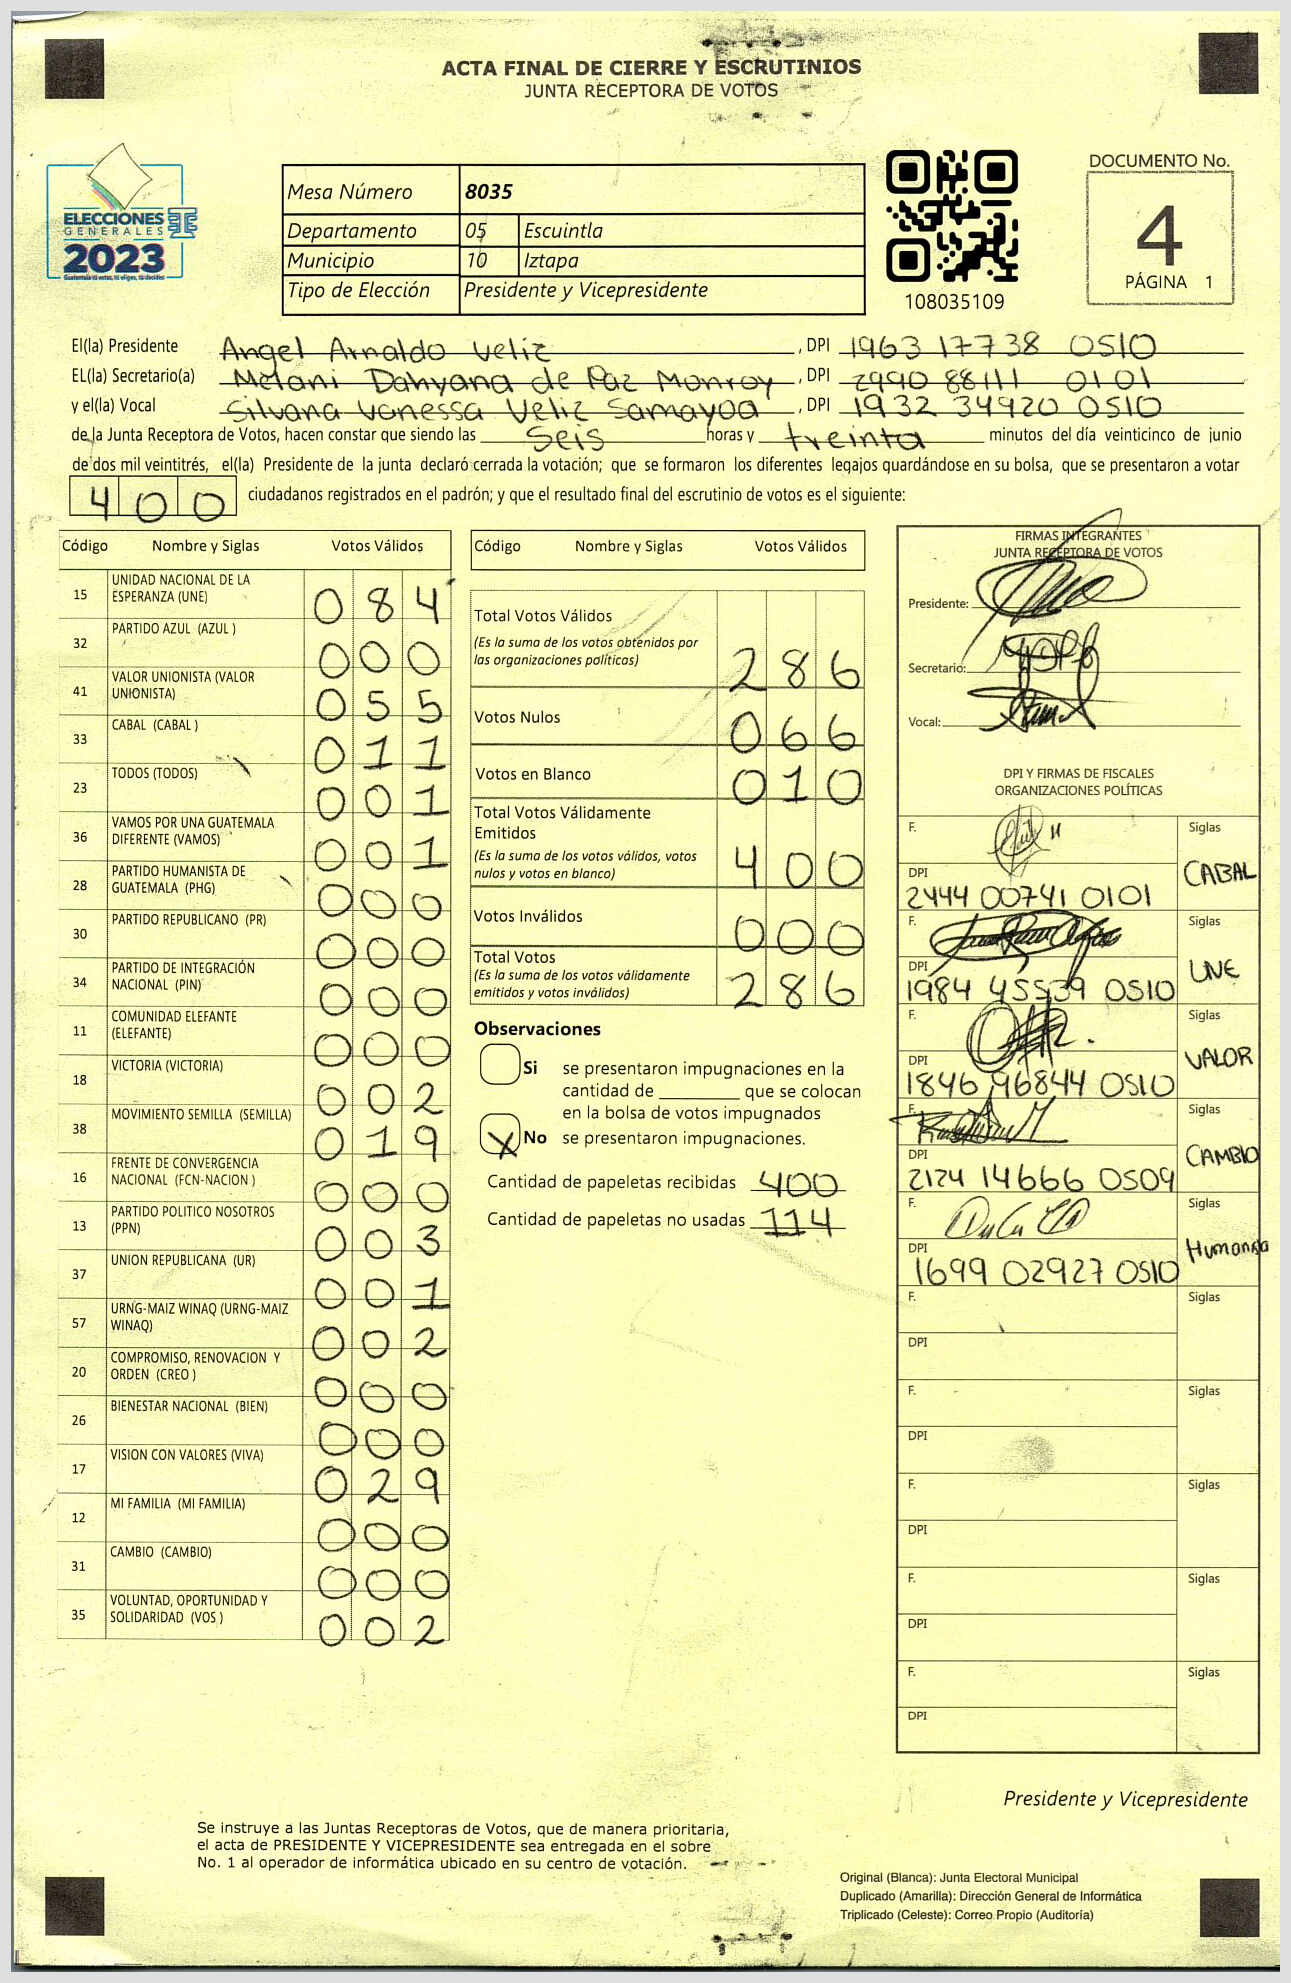 ACTA FINAL DE CIERRE Y ESCRUTINIOS
JUNTA RECEPTORA DE VOTOS
ELECCIONES
GENERALES
2023
Mesa Número 8035
Departamento 05 Escuintla
Municipio 10 Iztapa
Tipo de Elección Presidente y Vicepresidente
108035109
DOCUMENTO No.
4
PÁGINA 1
El(la) Presidente Angel Arnaldo Veliz , DPI 1963 17738 0510
EL(la) Secretario(a) Melani Dahyana de Paz Monroy , DPI 2990 88111 0101
y el(la) Vocal Silvana Vanessa Veliz Samayoa , DPI 1932 34920 0510
de la Junta Receptora de Votos, hacen constar que siendo las Seis horas y treinta minutos del día veinticinco de junio
de dos mil veintitrés, el(la) Presidente de la junta declaró cerrada la votación; que se formaron los diferentes legajos guardándose en su bolsa, que se presentaron a votar
400 ciudadanos registrados en el padrón; y que el resultado final del escrutinio de votos es el siguiente:
Código Nombre y Siglas Votos Válidos
15 UNIDAD NACIONAL DE LA ESPERANZA (UNE) 084
32 PARTIDO AZUL (AZUL ) 000
41 VALOR UNIONISTA (VALOR UNIONISTA) 055
33 CABAL (CABAL ) 011
23 TODOS (TODOS) 001
36 VAMOS POR UNA GUATEMALA DIFERENTE (VAMOS) 001
28 PARTIDO HUMANISTA DE GUATEMALA (PHG) 000
30 PARTIDO REPUBLICANO (PR) 000
34 PARTIDO DE INTEGRACIÓN NACIONAL (PIN) 000
11 COMUNIDAD ELEFANTE (ELEFANTE) 000
18 VICTORIA (VICTORIA) 002
38 MOVIMIENTO SEMILLA (SEMILLA) 019
16 FRENTE DE CONVERGENCIA NACIONAL (FCN-NACION ) 000
13 PARTIDO POLITICO NOSOTROS (PPN) 003
37 UNION REPUBLICANA (UR) 001
57 URNG-MAIZ WINAQ (URNG-MAIZ WINAQ) 002
20 COMPROMISO, RENOVACION Y ORDEN (CREO ) 000
26 BIENESTAR NACIONAL (BIEN) 000
17 VISION CON VALORES (VIVA) 029
12 MI FAMILIA (MI FAMILIA) 000
31 CAMBIO (CAMBIO) 000
35 VOLUNTAD, OPORTUNIDAD Y SOLIDARIDAD (VOS ) 002
Código Nombre y Siglas Votos Válidos
Total Votos Válidos
(Es la suma de los votos obtenidos por
las organizaciones políticas) 286
Votos Nulos 066
Votos en Blanco 010
Total Votos Válidamente
Emitidos
(Es la suma de los votos válidos, votos
nulos y votos en blanco) 400
Votos Inválidos 000
Total Votos
(Es la suma de los votos válidamente
emitidos y votos inválidos) 286
Observaciones
Si se presentaron impugnaciones en la
cantidad de ________ que se colocan
en la bolsa de votos impugnados
X No se presentaron impugnaciones.
Cantidad de papeletas recibidas 400
Cantidad de papeletas no usadas 114
FIRMAS INTEGRANTES
JUNTA RECEPTORA DE VOTOS
Presidente:
Secretario:
Vocal:
DPI Y FIRMAS DE FISCALES
ORGANIZACIONES POLÍTICAS
F. Siglas
CABAL
DPI
2444 00741 0101
F. Siglas
UNE
DPI
1984 45539 0510
F. Siglas
VALOR
DPI
1846 96844 0510
F. Siglas
CAMBIO
DPI
2124 14666 0509
F. Siglas
Humanista
DPI
1699 02927 0510
F. Siglas
DPI
F. Siglas
DPI
F. Siglas
DPI
F. Siglas
DPI
F. Siglas
DPI
Presidente y Vicepresidente
Se instruye a las Juntas Receptoras de Votos, que de manera prioritaria,
el acta de PRESIDENTE Y VICEPRESIDENTE sea entregada en el sobre
No. 1 al operador de informática ubicado en su centro de votación.
Original (Blanca): Junta Electoral Municipal
Duplicado (Amarilla): Dirección General de Informática
Triplicado (Celeste): Correo Propio (Auditoría)